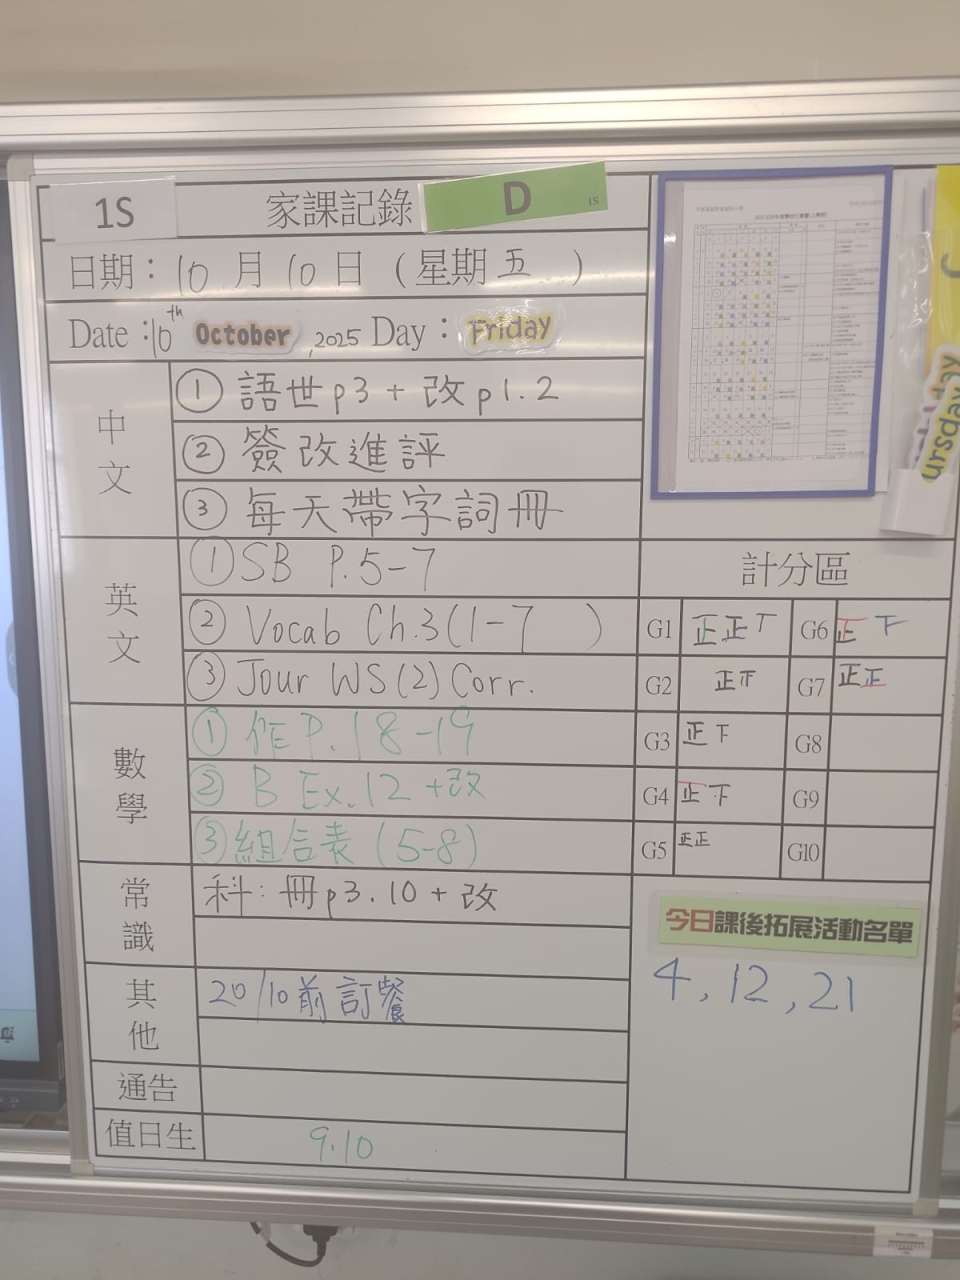 1S 家課記錄 D 1S
日期：10月10日（星期五）
Date：10th October, 2025 Day：Friday
中文
① 語世p3 + 改p1.2
② 簽改進評
③ 每天帶字詞冊
英文
① SB P.5-7
② Vocab Ch.3(1-7 )
③ Jour WS(2) Corr.
數學
① 作P.18-19
② B Ex.12 +改
③ 組合表 (5-8)
常識
科：冊p3.10 + 改
其他
20/10前訂餐
通告
值日生
9.10
計分區
G1 正正丅 G6 正下
G2 正正 G7 正正
G3 正下 G8
G4 正下 G9
G5 正正 G10
今日課後拓展活動名單
4, 12, 21
ursday